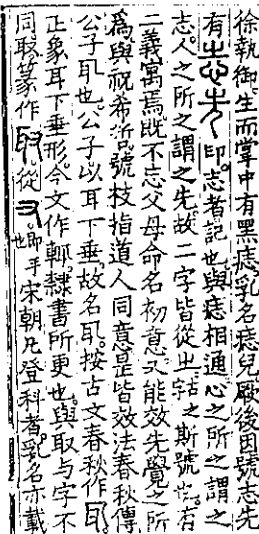 徐執御生而掌中有黑痣乳名痣兒厥後因號志先
有志先印志者記也與痣相通心之所之謂之
志人之所之謂之先故二字皆從㞢之斯號也有
二義寓焉既不忘父母命名初意又能效先覺之所
爲與祝希哲號枝指道人同意是皆效法春秋傳
公子耴也公子以耳下垂故名耴按古文春秋作耴
正象耳下垂形今文作輒隸書所更也與取与字不
同取篆作取從又即手也宋朝凡登科者乳名亦載